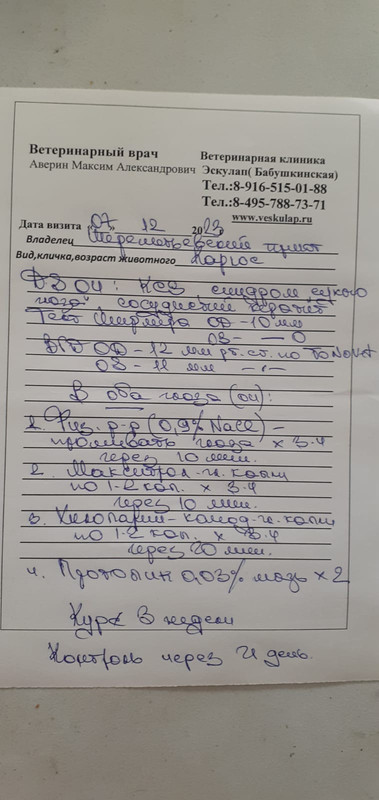 Ветеринарный врач
Аверин Максим Александрович
Ветеринарная клиника
Эскулап( Бабушкинская)
Тел.:8-916-515-01-88
Тел.:8-495-788-73-71
www.veskulap.ru
Дата визита "07" 12 2023г.
Владелец Шереметьевский приют
Вид,кличка,возраст животного Каргос
DS OU: КСЗ синдром "сухого
глаза", сосудистый кератит
Тест Ширмера OD - 10 мм
OS - — 0
ВГД OD - 12 мм рт. ст. по TonoVet
OS - 11 мм —〃—
В оба глаза (OU):
1. Физ. р-р (0,9% NaCl) -
промывать глаза х 3-4
через 10 мин.
2. Макситрол - гл. капли
по 1-2 кап. х 3-4
через 10 мин.
3. Хилопарин-комод - гл. капли
по 1-2 кап. х 3-4
через 20 мин.
4. 0,03% мазь х 2
Курс 3 недели
Контроль через 21 день.